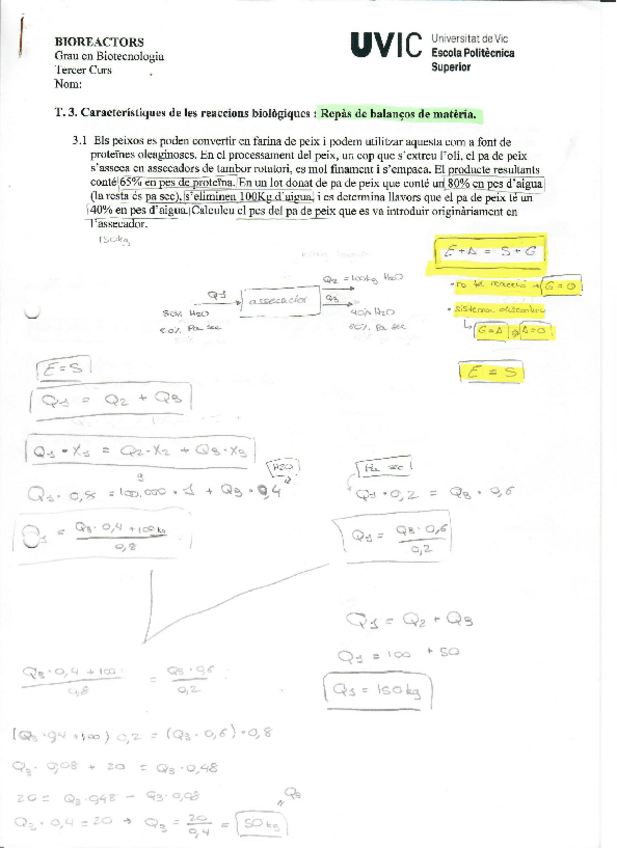 BIOREACTORS
Grau en Biotecnologia
Tercer Curs
Nom:
UVIC Universitat de Vic
Escola Politècnica
Superior
T. 3. Característiques de les reaccions biològiques : Repàs de balanços de matèria.
3.1 Els peixos es poden convertir en farina de peix i podem utilitzar aquesta com a font de
proteïnes oleaginoses. En el processament del peix, un cop que s'extreu l'oli, el pa de peix
s'asseca en assecadors de tambor rotatori, es mol finament i s'empaca. El producte resultants
conté 65% en pes de proteïna. En un lot donat de pa de peix que conté un 80% en pes d'aigua
(la resta és pa sec), s'eliminen 100Kg d'aigua, i es determina llavors que el pa de peix té un
40% en pes d'aigua. Calculeu el pes del pa de peix que es va introduir originàriament en
l'assecador.
150kg
E + A = S + G
Q1
assecador
Q2 = 100kg H2O
Q3
80% H2O
Pa sec
40% H2O
60% Pa sec
G = 0
E = S
E = S
Q1 = Q2 + Q3
Q1 · X1 = Q2 · X2 + Q3 · X3
H2O
Q1 · 0,8 = 100.000 · 1 + Q3 · 0,4
Pa sec
Q1 · 0,2 = Q3 · 0,6
Q1 = Q3 · 0,4 + 100kg / 0,8
Q1 = Q3 · 0,6 / 0,2
Q1 = Q2 + Q3
Q1 = 100 + 50
Q1 = 150kg
Q3 · 0,4 + 100 / 0,8 = Q3 · 0,6 / 0,2
(Q3 · 0,4 + 100) 0,2 = (Q3 · 0,6) · 0,8
Q3 · 0,08 + 20 = Q3 · 0,48
20 = Q3 · 0,48 - Q3 · 0,08
Q3 · 0,4 = 20 → Q3 = 20 / 0,4 = 50kg
Q3